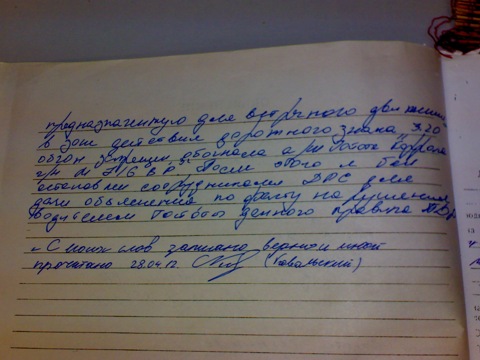 предназначенную для встречного движения
в зоне действия дорожного знака 3.20
обгон запрещен, обогнала а/м Тойота Королла
г/н М 716 ВР. После этого я был
остановлен сотрудниками ДПС для
дачи объяснения, по факту нарушения
водителем Тойоты данного правила ПДД
С моих слов записано верно и мной
прочитано 28.04.12 (Ковальский)